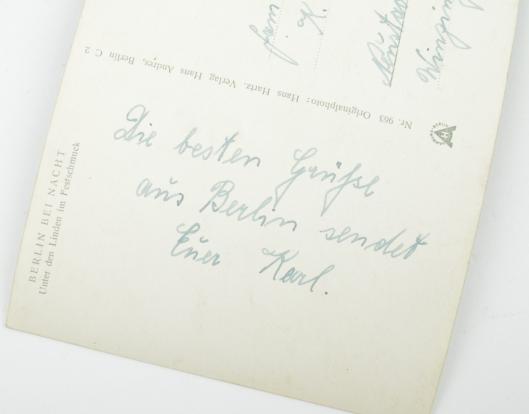 Die besten Grüße
aus Berlin sendet
Euer Karl.
BERLIN BEI NACHT
Unter den Linden im Festschmuck
Nr. 963 Originalphoto: Hans Hartz. Verlag Hans Andres, Berlin C 2